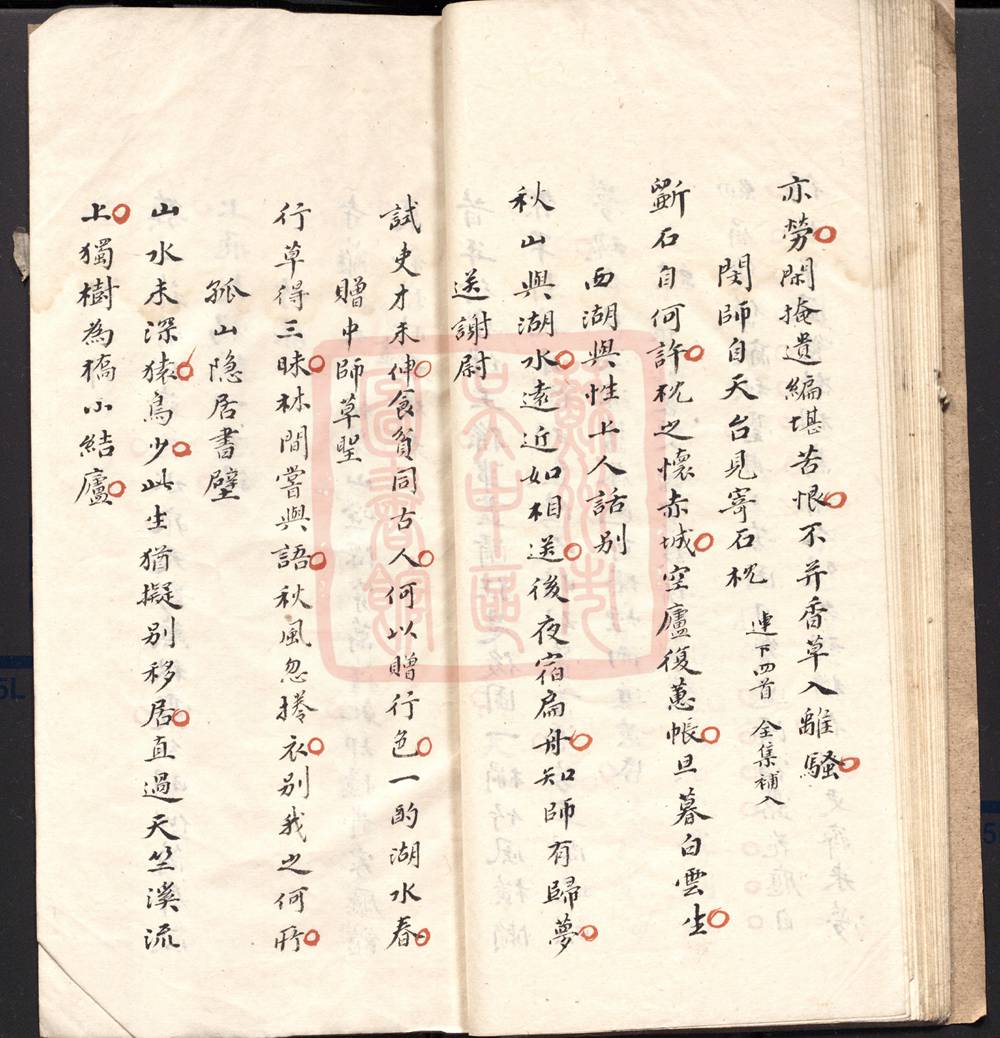 亦勞閑掩遺編堪苦恨不并香草入離騷
閔師自天台見寄石枕 連下四首 全集補入
斲石自何許枕之懷赤城空廬復蕙帳旦暮白雲生
西湖與性上人話别
秋山與湖水遠近如相送後夜宿扁舟知師有歸夢
送謝尉
試吏才未伸食貧同古人何以贈行色一酌湖水春
贈中師草聖
行草得三昧林間嘗與語秋風忽捲衣别我之何所
孤山隐居書壁
山水未深猿鳥少此生猶擬别移居直過天竺溪流
上獨樹為橋小結廬
蘇州市
吳中區
圖書館